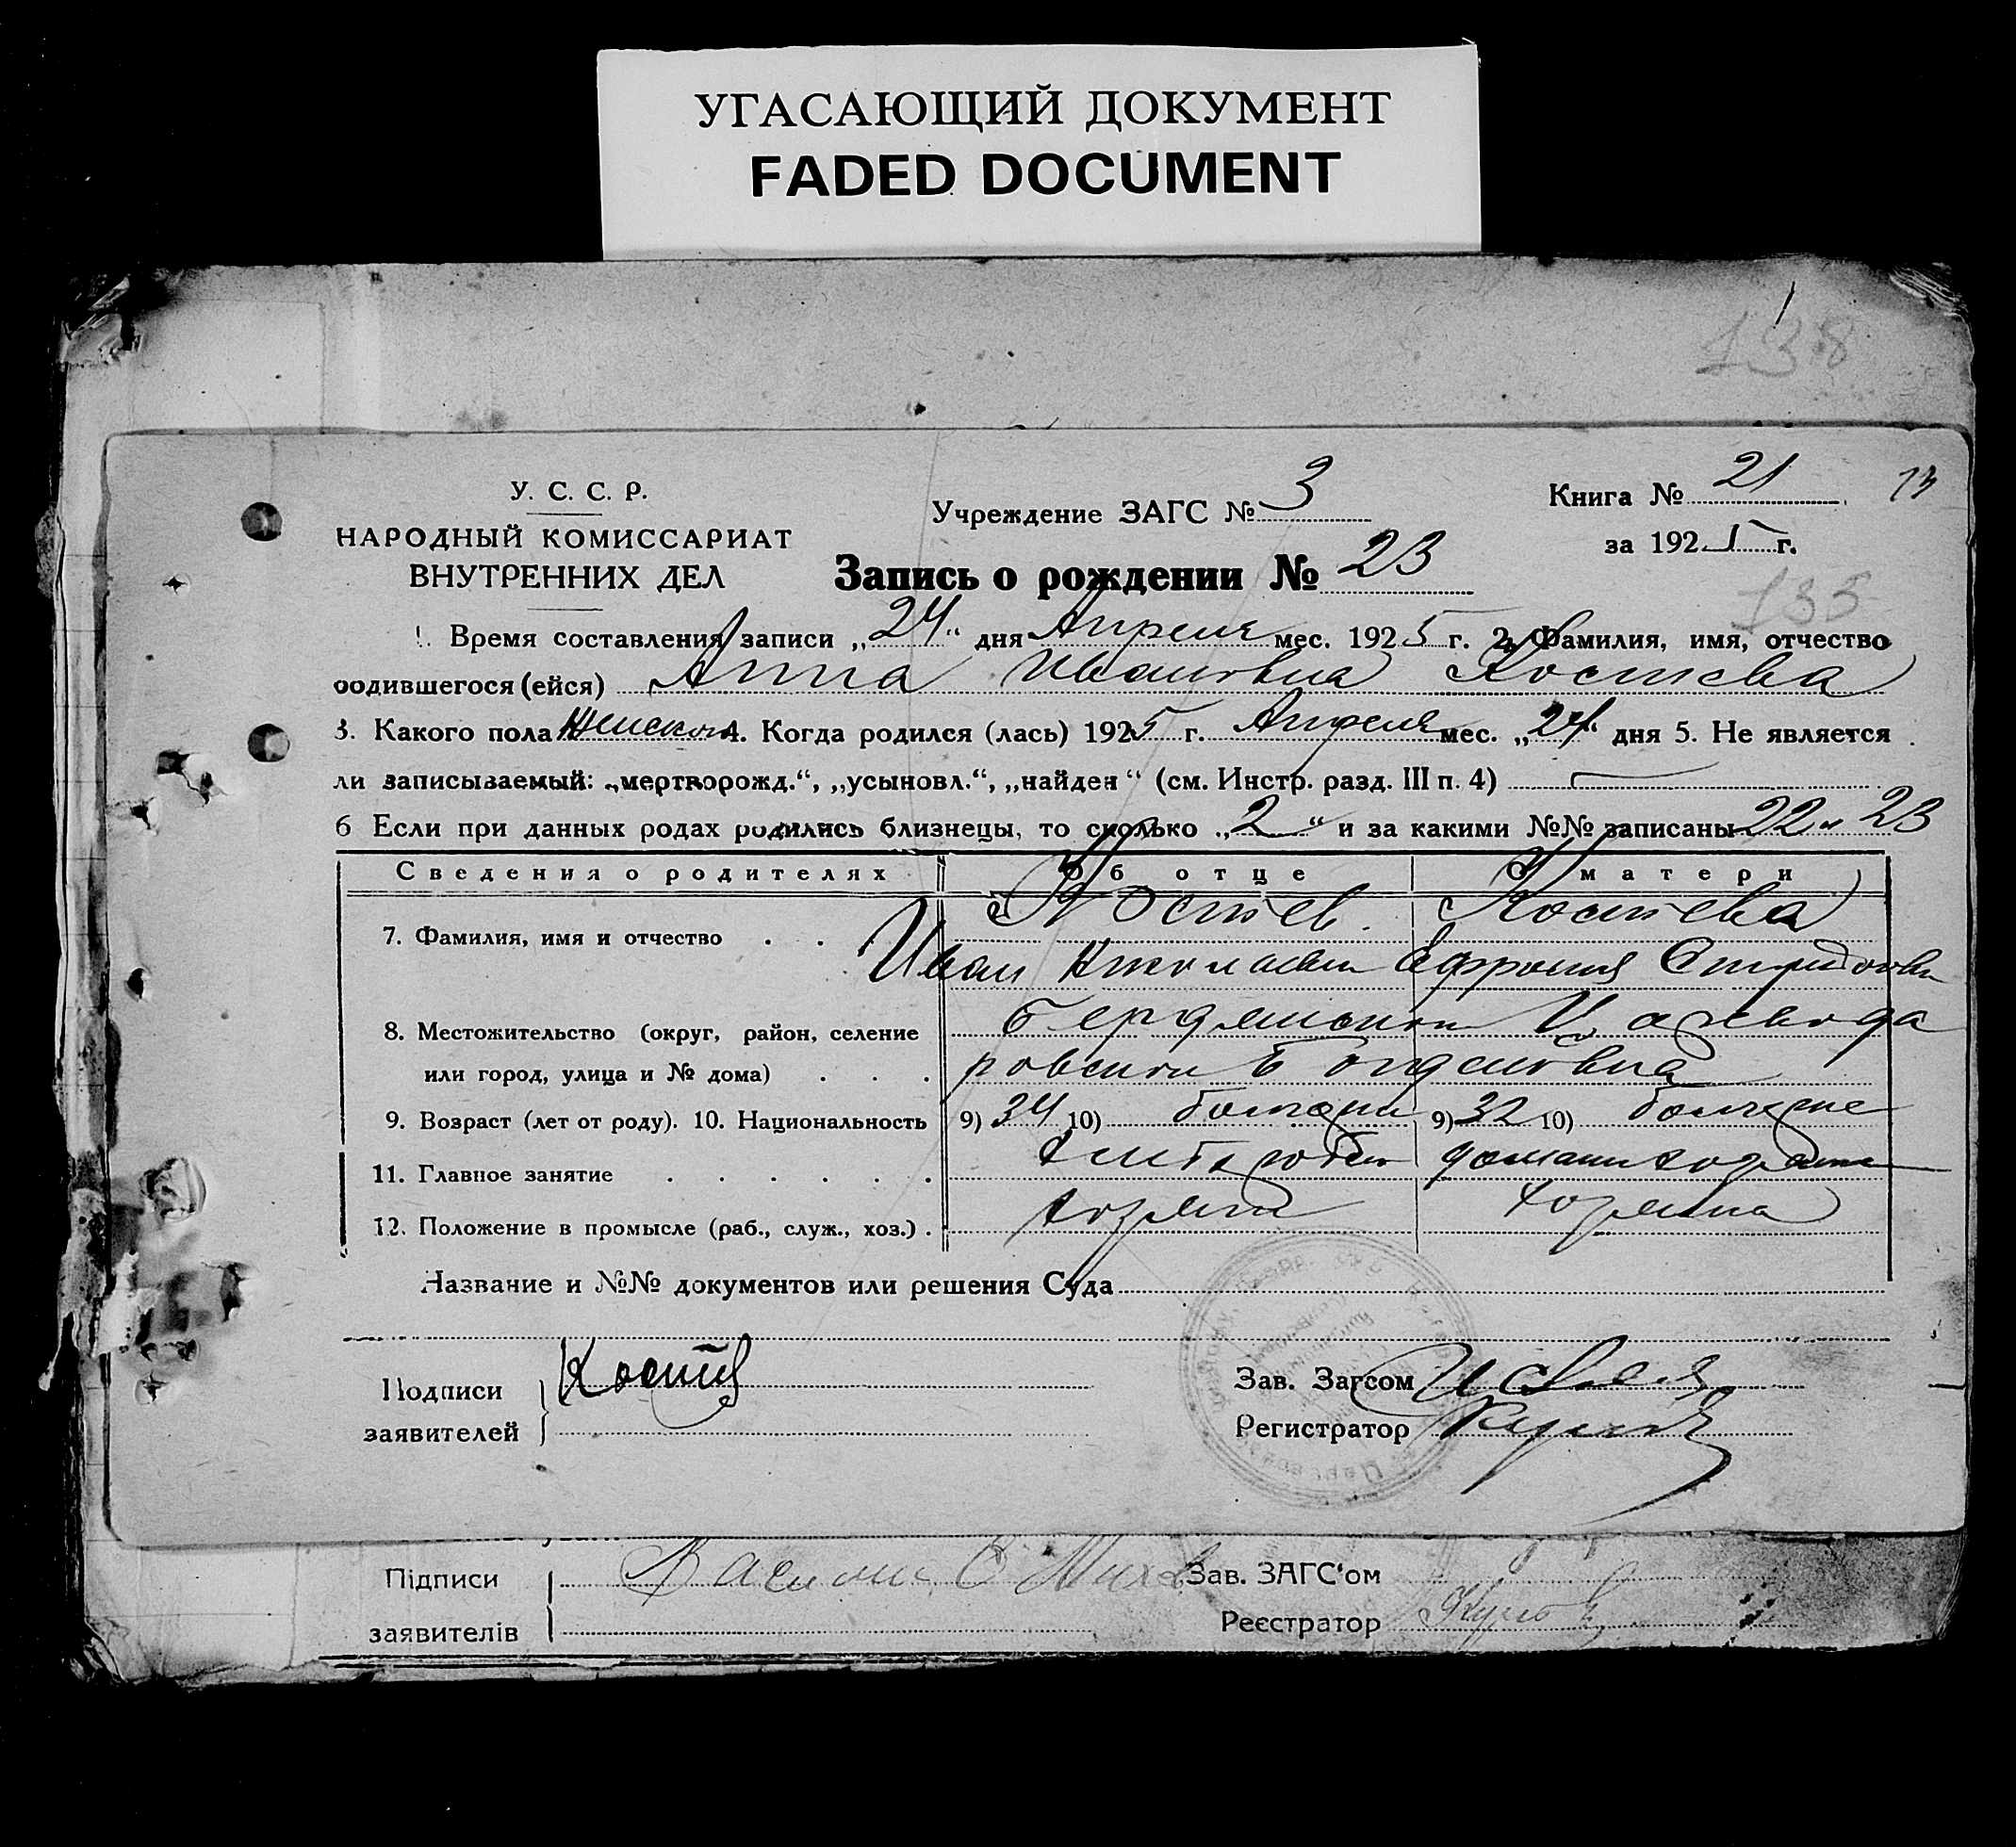 УГАСАЮЩИЙ ДОКУМЕНТ
FADED DOCUMENT
138
У. С. С. Р.
НАРОДНЫЙ КОМИССАРИАТ
ВНУТРЕННИХ ДЕЛ
Учреждение ЗАГС № 3
Книга № 21
за 1925 г.
Запись о рождении № 23
135
1. Время составления записи „24“ дня Апреля мес. 1925 г. 2. Фамилия, имя, отчество
родившегося (ейся) Анна Ивановна Костева
3. Какого пола Женского 4. Когда родился (лась) 1925 г. Апреля мес. „24“ дня 5. Не является
ли записываемый: „мертворожд.“, „усыновл.“, „найден“ (см. Инстр. разд. III п. 4)
6 Если при данных родах родились близнецы, то сколько „2“ и за какими №№ записаны 22 и 23
Сведения о родителях Об отце О матери
7. Фамилия, имя и отчество Костев Костева
Иван Николаевич Ефросиния
8. Местожительство (округ, район, селение
или город, улица и № дома)
9. Возраст (лет от роду). 10. Национальность 9) 34 10) болгарин 9) 32 10) болгарка
11. Главное занятие хлебороб
12. Положение в промысле (раб., служ., хоз.) хозяин хозяйка
Название и №№ документов или решения Суда
Подписи
заявителей
Костев
Зав. Загсом
Регистратор
Підписи
заявителів
Зав. ЗАГС'ом
Реєстратор